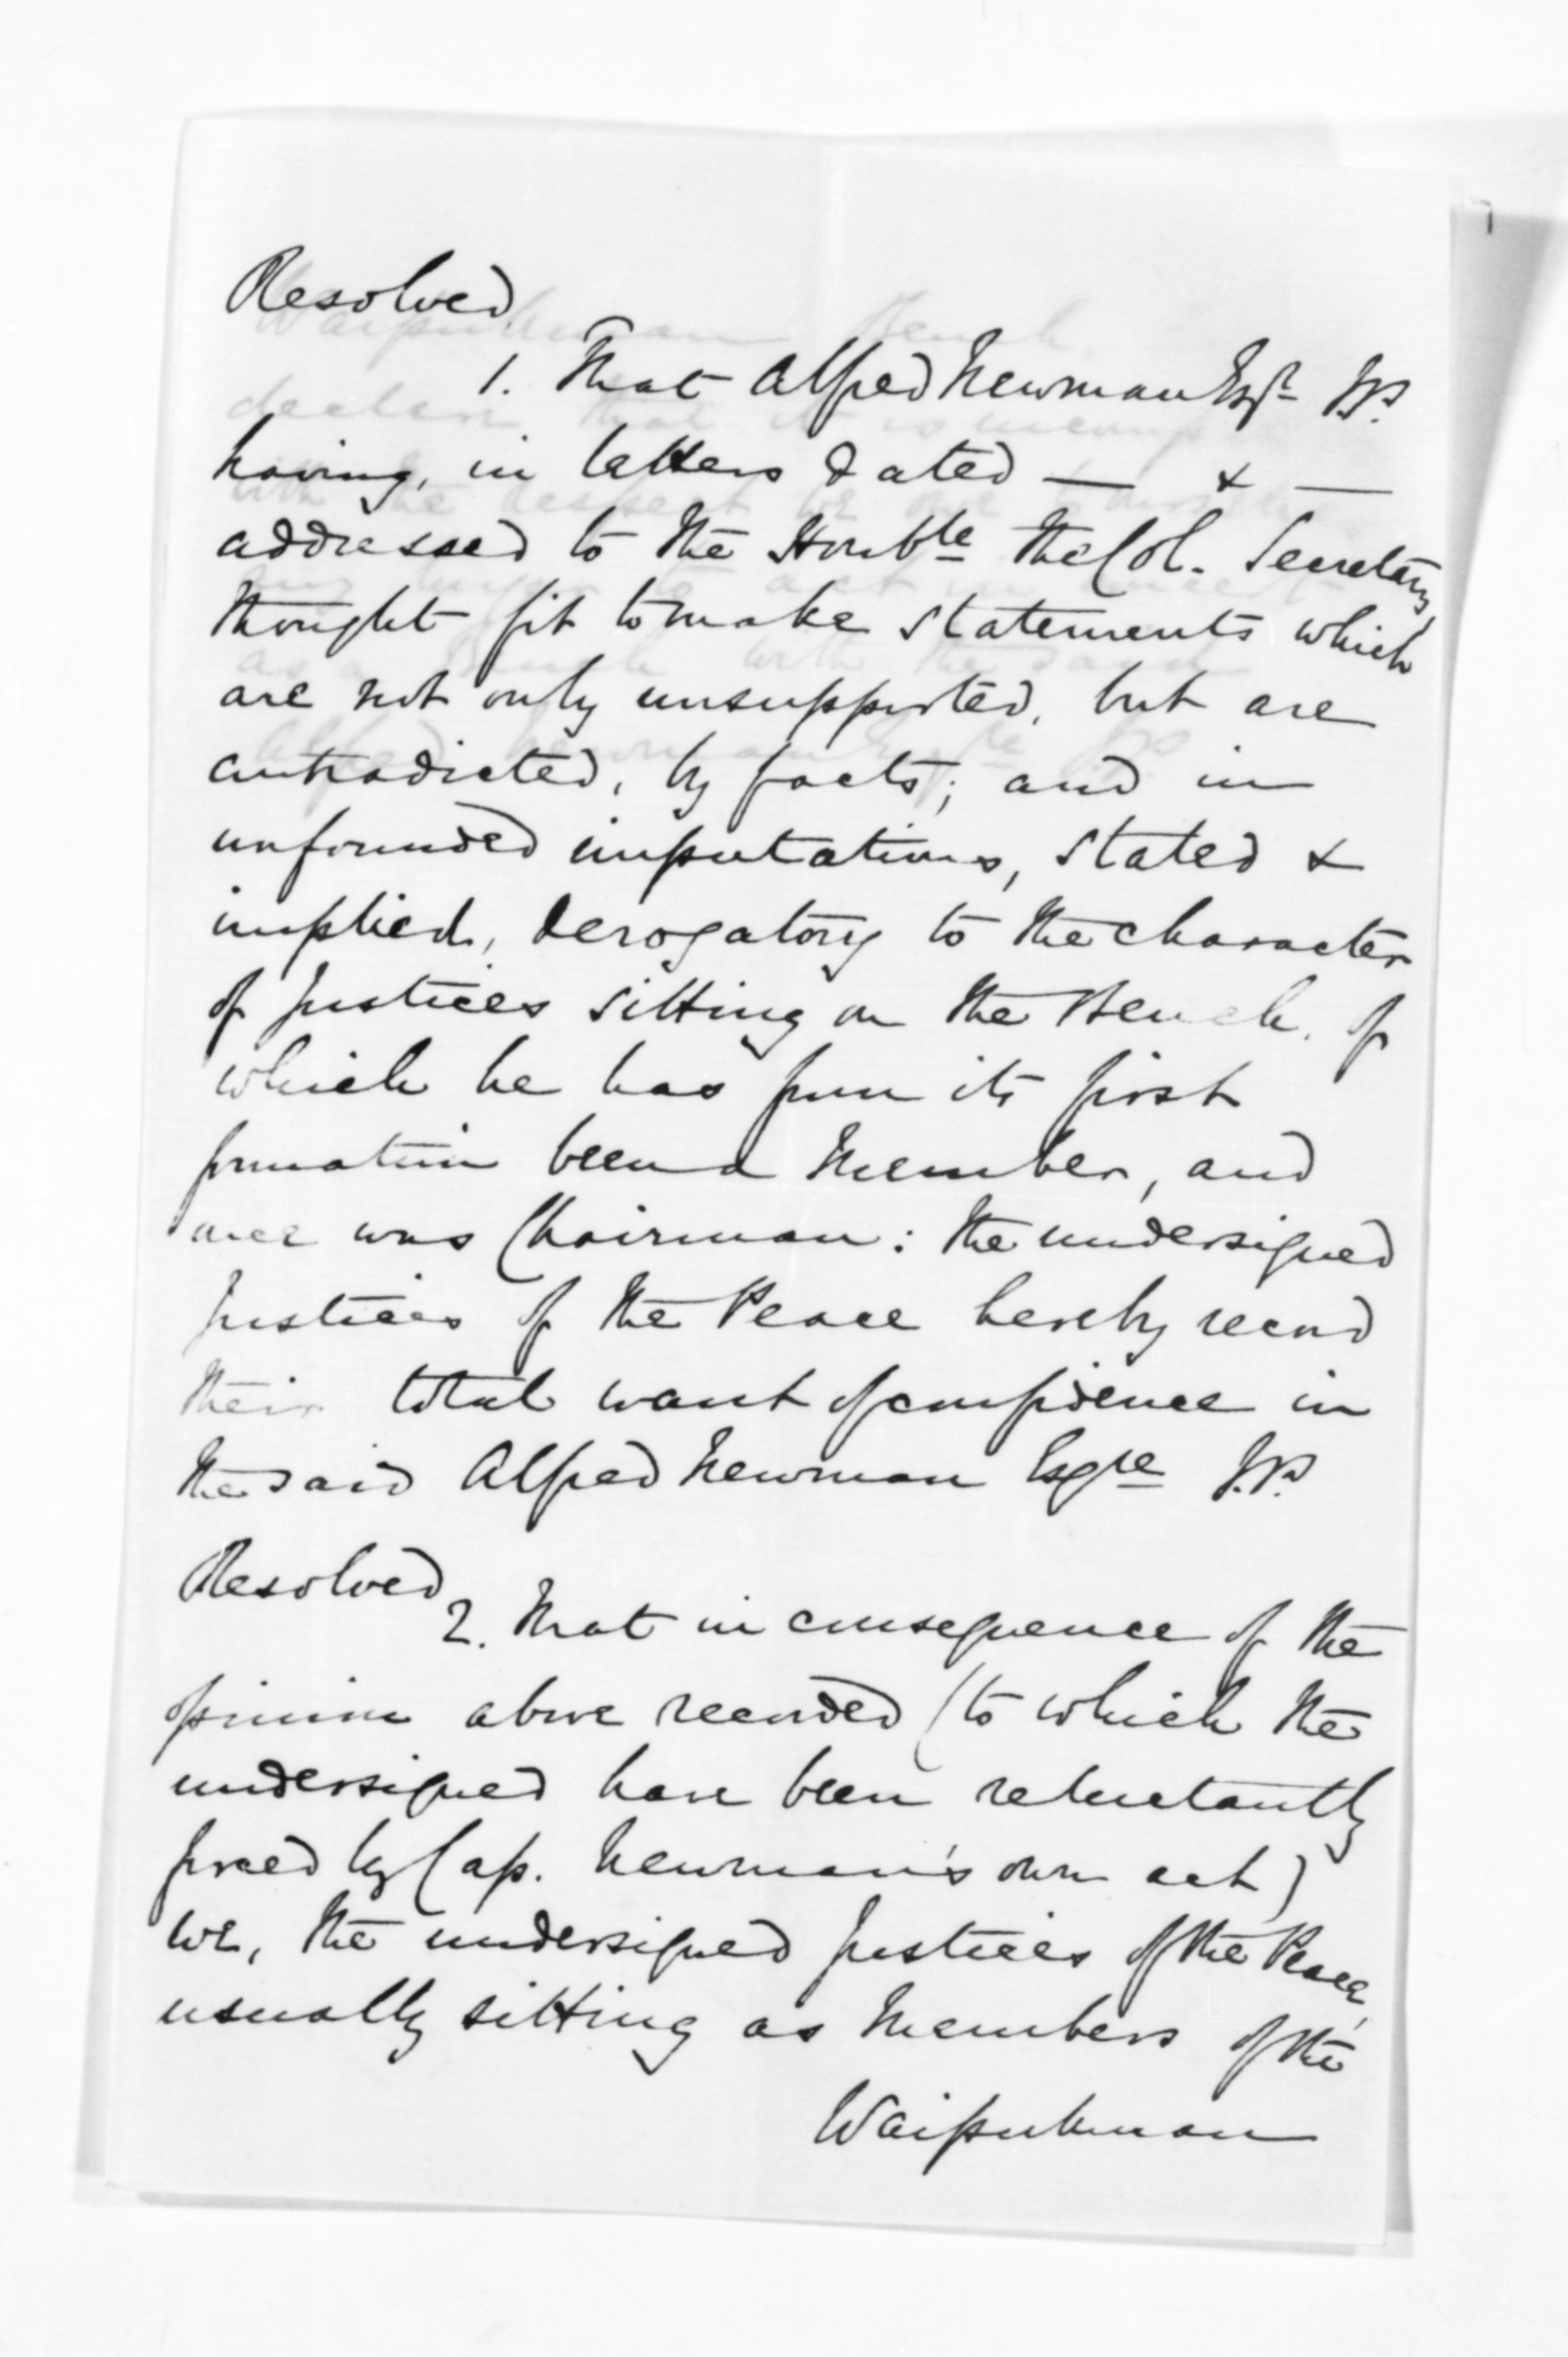 Resolved
1. That Alfred Newman Esqr J.P.
having, in letters dated — & —
addressed to the Honble the Col. Secretary,
thought fit to make statements which
are not only unsupported, but are
contradicted, by facts; and in
unfounded imputations, stated &
implied, derogatory to the character
of Justices sitting on the Bench, of
which he has from its first
formation been a Member, and
once was Chairman: the undersigned
Justices of the Peace hereby record
their total want of confidence in
the said Alfred Newman Esqre J.P.
Resolved
2. That in consequence of the
opinion above recorded (to which the
undersigned have been reluctantly
forced by Cap. Newman's own act)
we, the undersigned Justices of the Peace,
usually sitting as Members of the
Waipukurau